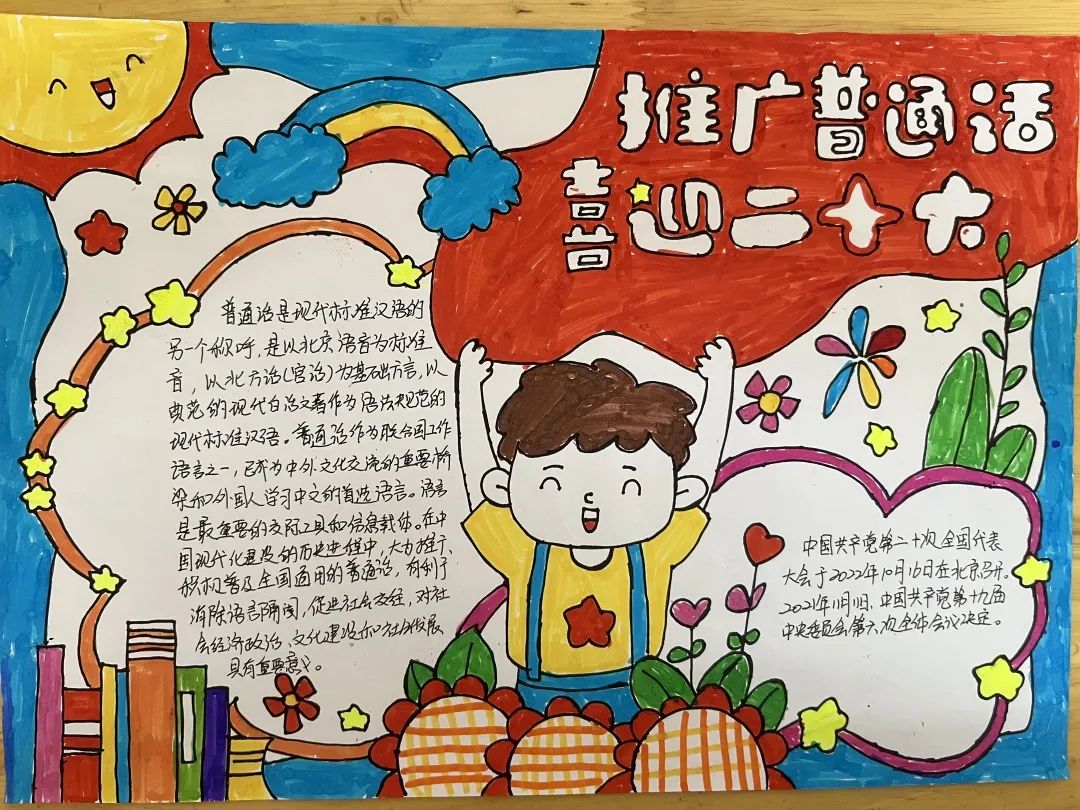 推广普通话
喜迎二十大
普通话是现代标准汉语的
另一个称呼,是以北京语音为标准
音,以北方话(官话)为基础方言,以
典范的现代白话文著作为语法规范的
现代标准汉语。普通话作为联合国工作
语言之一,已成为中外文化交流的重要桥
梁和外国人学习中文的首选语言。语言
是最重要的交际工具和信息载体。在中
国现代化建设的历史进程中,大力推广、
积极普及全国通用的普通话,有利于
消除语言隔阂,促进社会交往,对社
会经济政治、文化建设和社会发展
具有重要意义。
中国共产党第二十次全国代表
大会于2022年10月16日在北京召开。
2021年11月11日,中国共产党第十九届
中央委员会第六次全体会议决定。